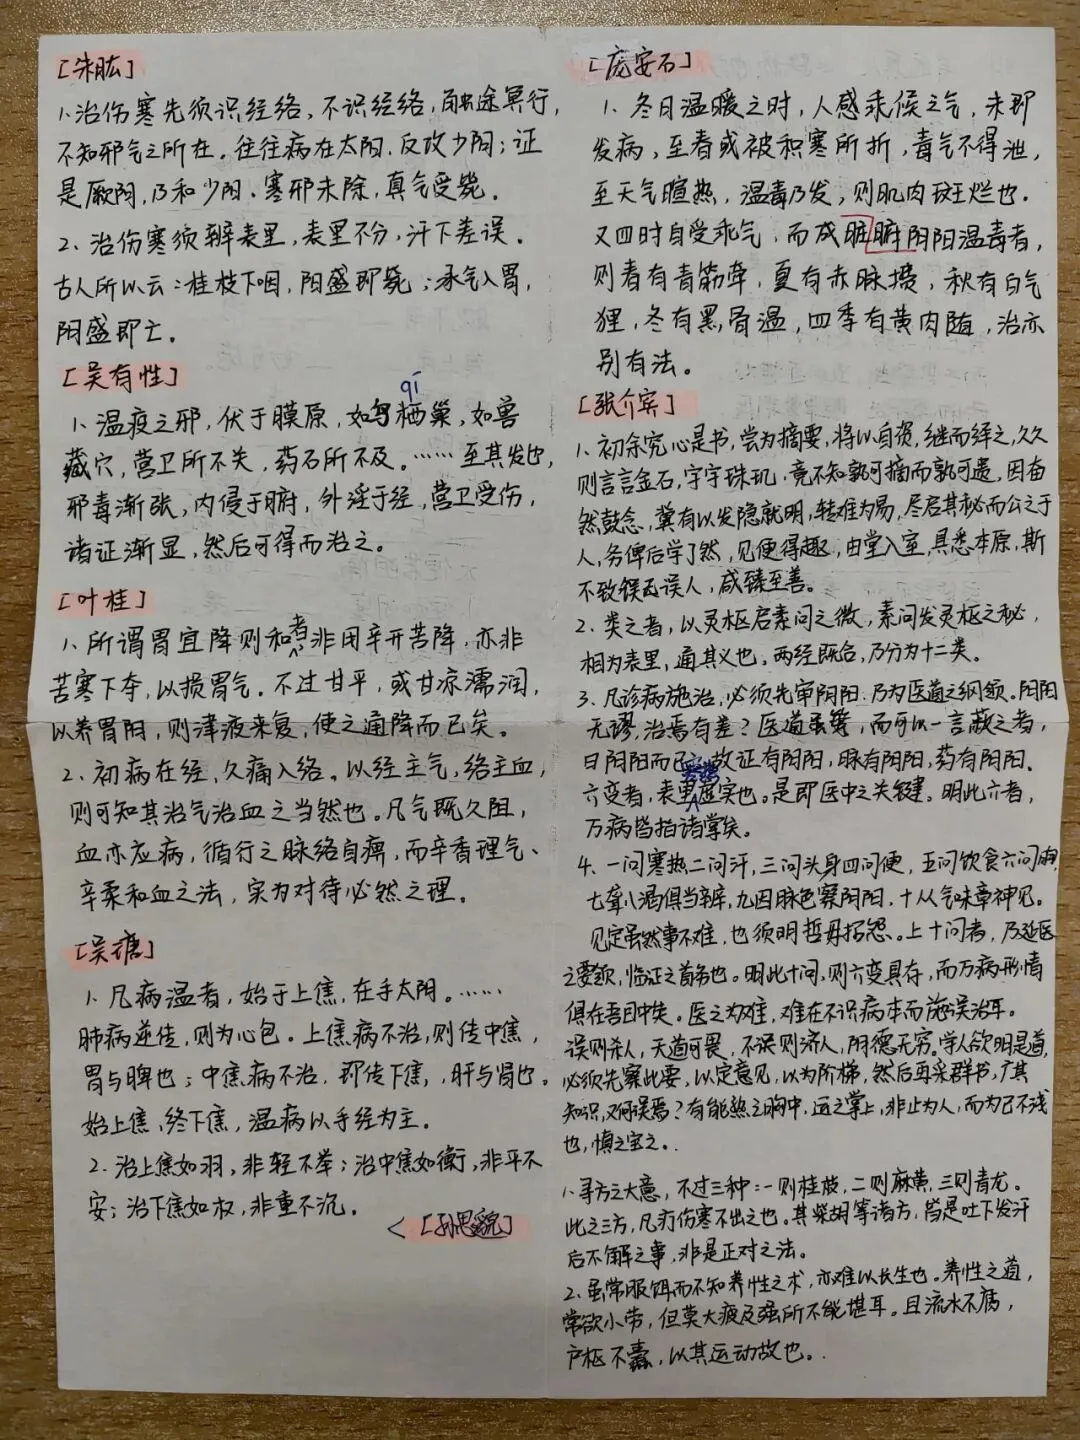 [朱肱]
1.治伤寒先须识经络，不识经络，触途冥行，
不知邪气之所在。往往病在太阳，反攻少阴；证
是厥阴，乃和少阳。寒邪未除，真气受毙。
2.治伤寒须辨表里，表里不分，汗下差误。
古人所以云：桂枝下咽，阳盛即毙；承气入胃，
阴盛即亡。
[吴有性]
qí
1.温疫之邪，伏于膜原，如鸟栖巢，如兽
藏穴，营卫所不失，药石所不及。……至其发也，
邪毒渐张，内侵于腑，外淫于经，营卫受伤，
诸证渐显，然后可得而治之。
[叶桂]
1.所谓胃宜降则和者非用辛开苦降，亦非
苦寒下夺，以损胃气。不过甘平，或甘凉濡润，
以养胃阴，则津液来复，使之通降而已矣。
2.初病在经，久痛入络。以经主气，络主血，
则可知其治气治血之当然也。凡气既久阻，
血亦应病，循行之脉络自痹，而辛香理气、
辛柔和血之法，实为对待必然之理。
[吴瑭]
1.凡病温者，始于上焦，在手太阴。……
肺病逆传，则为心包。上焦病不治，则传中焦，
胃与脾也；中焦病不治，即传下焦，，肝与肾也。
始上焦，终下焦，温病以手经为主。
2.治上焦如羽，非轻不举；治中焦如衡，非平不
安；治下焦如权，非重不沉。
<[孙思邈]
[庞安石]
1.冬日温暖之时，人感乖候之气，未即
发病，至春或被积寒所折，毒气不得泄，
至天气暄热，温毒乃发，则肌肉斑烂也。
又四时自受乖气，而成脏腑阴阳温毒者，
则春有青筋牵，夏有赤脉攒，秋有白气
狸，冬有黑骨温，四季有黄肉随，治亦
别有法。
[张介宾]
1.初余究心是书，尝为摘要，将以自资，继而绎之，久久
则言言金石，字字珠玑，竟不知孰可摘而孰可遗，因奋
然鼓念，冀有以发隐就明，转难为易，尽启其秘而公之于
人，务俾后学了然，见便得趣，由堂入室，具悉本原，斯
不致误己误人，咸臻至善。
2.类之者，以灵枢启素问之微，素问发灵枢之秘，
相为表里，通其义也。两经既合，乃分为十二类。
3.凡诊病施治，必须先审阴阳，乃为医道之纲领。阴阳
无谬，治焉有差？医道虽繁，而可以一言蔽之者，
曰阴阳而已。故证有阴阳，脉有阴阳，药有阴阳。
六变者，表里寒热虚实也。是即医中之关键。明此六者，
万病皆指诸掌矣。
4.一问寒热二问汗，三问头身四问便，五问饮食六问胸，
七聋八渴俱当辨，九因脉色察阴阳，十从气味章神见。
见定虽然事不难，也须明哲毋招怨。上十问者，乃延医
之要领，临证之首务也。明此十问，则六变具存，而万病形情
俱在吾目中矣。医之为难，难在不识病本而施误治耳。
误则杀人，天道可畏，不误则济人，阴德无穷。学人欲明是道，
必须先察此要，以定意见，以为阶梯，然后再采群书，广其
知识，又何误焉？有能熟之胸中，运之掌上，非止为人，而为己不浅
也，慎之宝之。.
1.寻方之大意，不过三种：一则桂枝，二则麻黄，三则青龙。
此之三方，凡疗伤寒不出之也。其柴胡等诸方，皆是吐下发汗
后不解之事，非是正对之法。
2.虽常服饵而不知养性之术，亦难以长生也。养性之道，
常欲小劳，但莫大疲及强所不能堪耳。且流水不腐，
户枢不蠹，以其运动故也。.